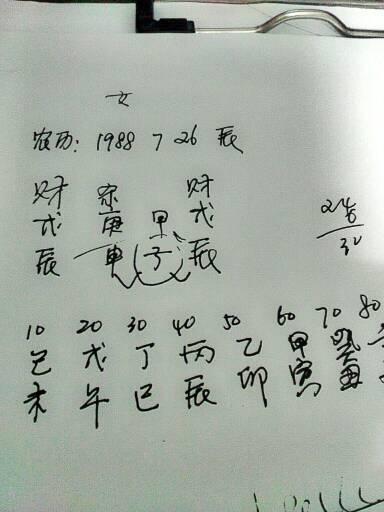 女
农历: 1988 7 26 辰
财 杀 财
戊 庚 甲 戊
辰 申 子 辰
10 20 30 40 50 60 70 80
己 戊 丁 丙 乙 甲 癸
未 午 巳 辰 卯 寅 丑